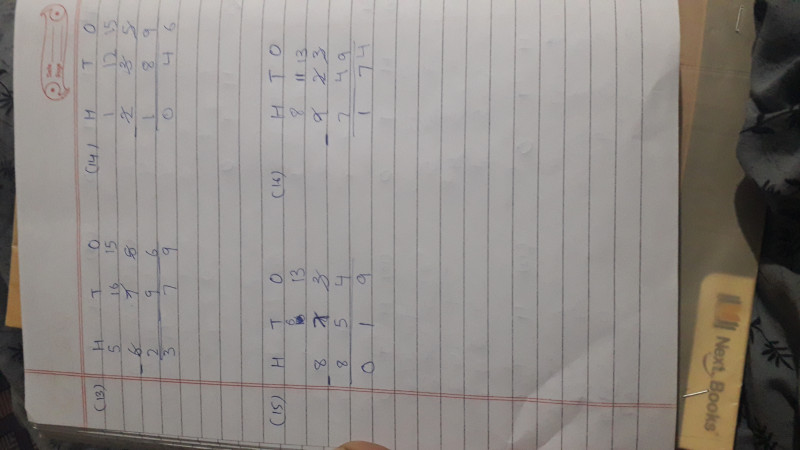 Date
Page
(13) H T O (14) H T O
5 16 15 1 12 15
6 7 5 2 3 5
- 2 9 6 - 1 8 9
3 7 9 0 4 6
(15) H T O (16) H T O
6 13 8 11 13
8 7 3 9 2 3
- 8 5 4 - 7 4 9
0 1 9 1 7 4
Next Books